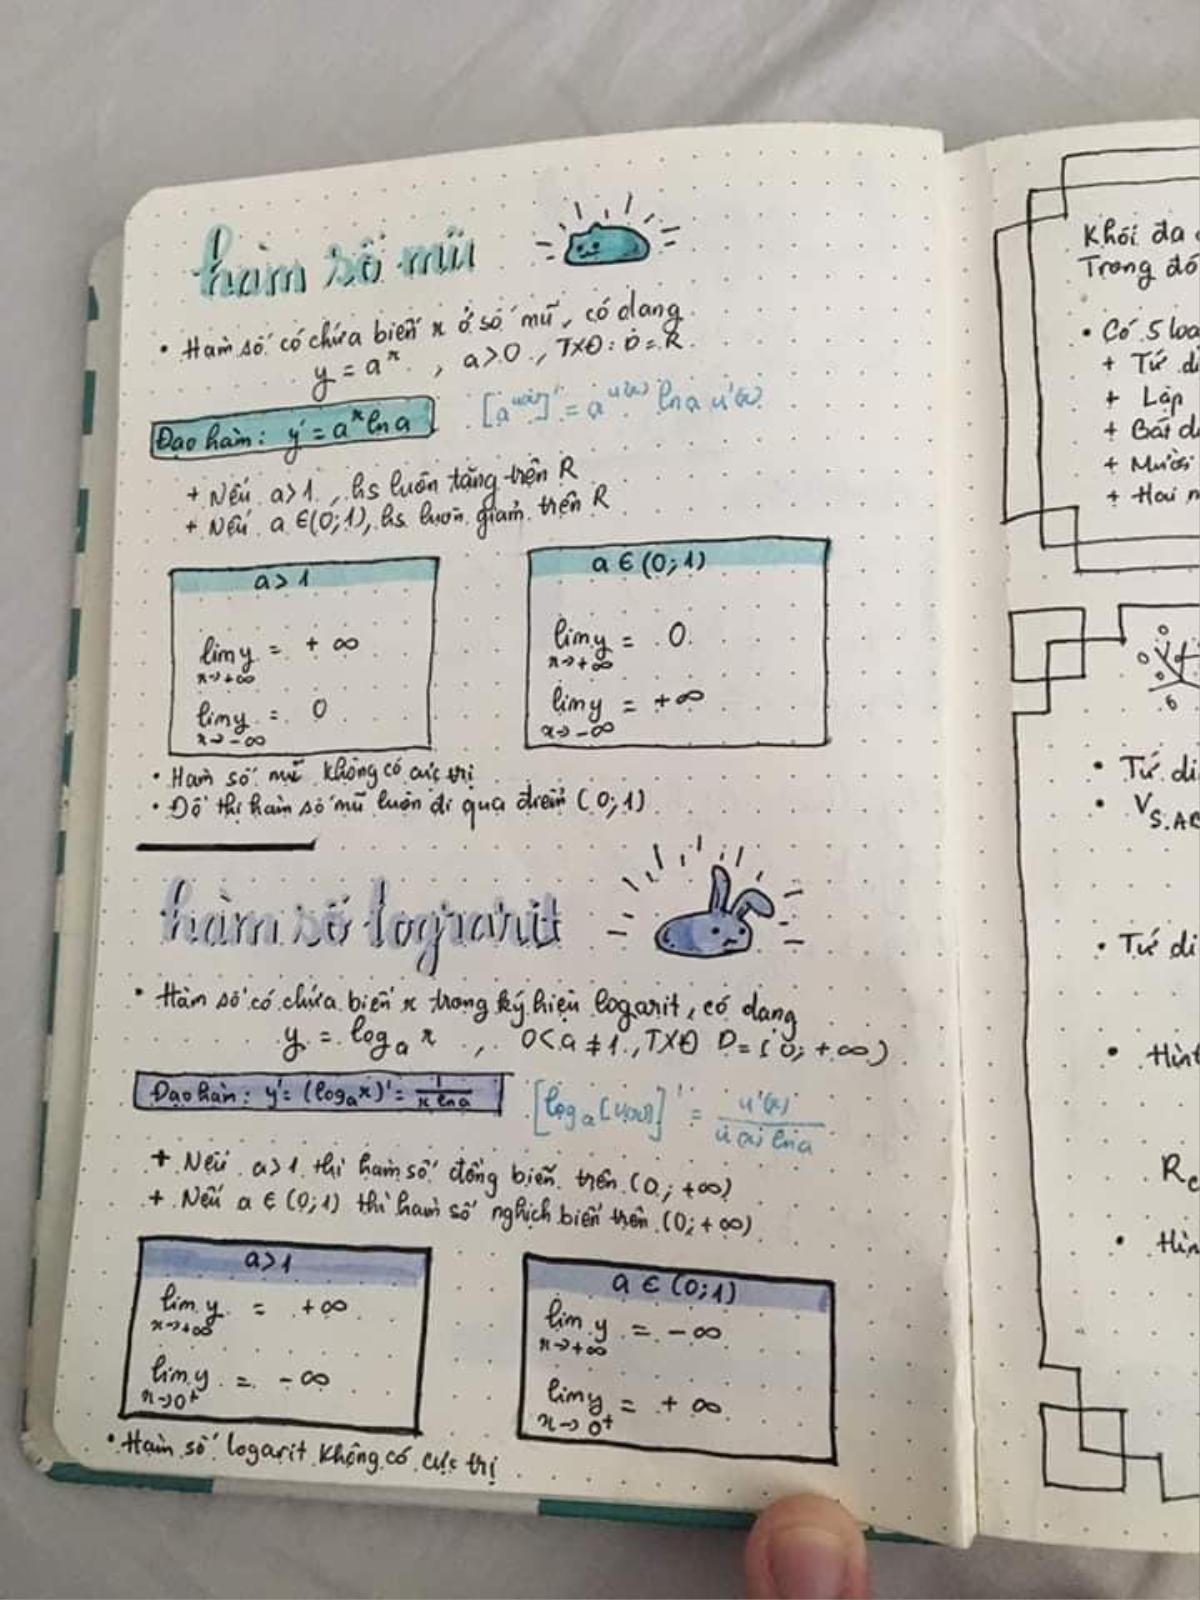 hàm số mũ
• Hàm số có chứa biến x ở số mũ, có dạng
y = a^x , a>0, TXĐ: D=R
Đạo hàm: y' = a^x ln a
[a^u(x)]' = a^u(x) ln a u'(x)
+ Nếu a>1, hs luôn tăng trên R
+ Nếu a ∈ (0;1), hs luôn giảm trên R
a>1
lim y = +∞
x→+∞
lim y = 0
x→-∞
a ∈ (0;1)
lim y = 0
x→+∞
lim y = +∞
x→-∞
• Hàm số mũ không có cực trị
• Đồ thị hàm số mũ luôn đi qua điểm (0;1)
hàm số lograrit
• Hàm số có chứa biến x trong ký hiệu logarit, có dạng
y = log_a x , 0<a≠1, TXĐ D=(0;+∞)
Đạo hàm: y'= (log_a x)' = 1/(x ln a)
[log_a [u(x)]]' = u'(x)/(u(x) ln a)
+ Nếu a>1 thì hàm số đồng biến trên (0;+∞)
+ Nếu a ∈ (0;1) thì hàm số nghịch biến trên (0;+∞)
a>1
lim y = +∞
x→+∞
lim y = -∞
x→0⁺
a ∈ (0;1)
lim y = -∞
x→+∞
lim y = +∞
x→0⁺
• Hàm số logarit không có cực trị
Khối đa
Trong đó
• Có 5 loạ
+ Tứ di
+ Lập
+ Bát di
+ Mười
+ Hai m
6
• Tứ di
• V_S.AB
• Tứ di
• Hình
R_c
• Hìn